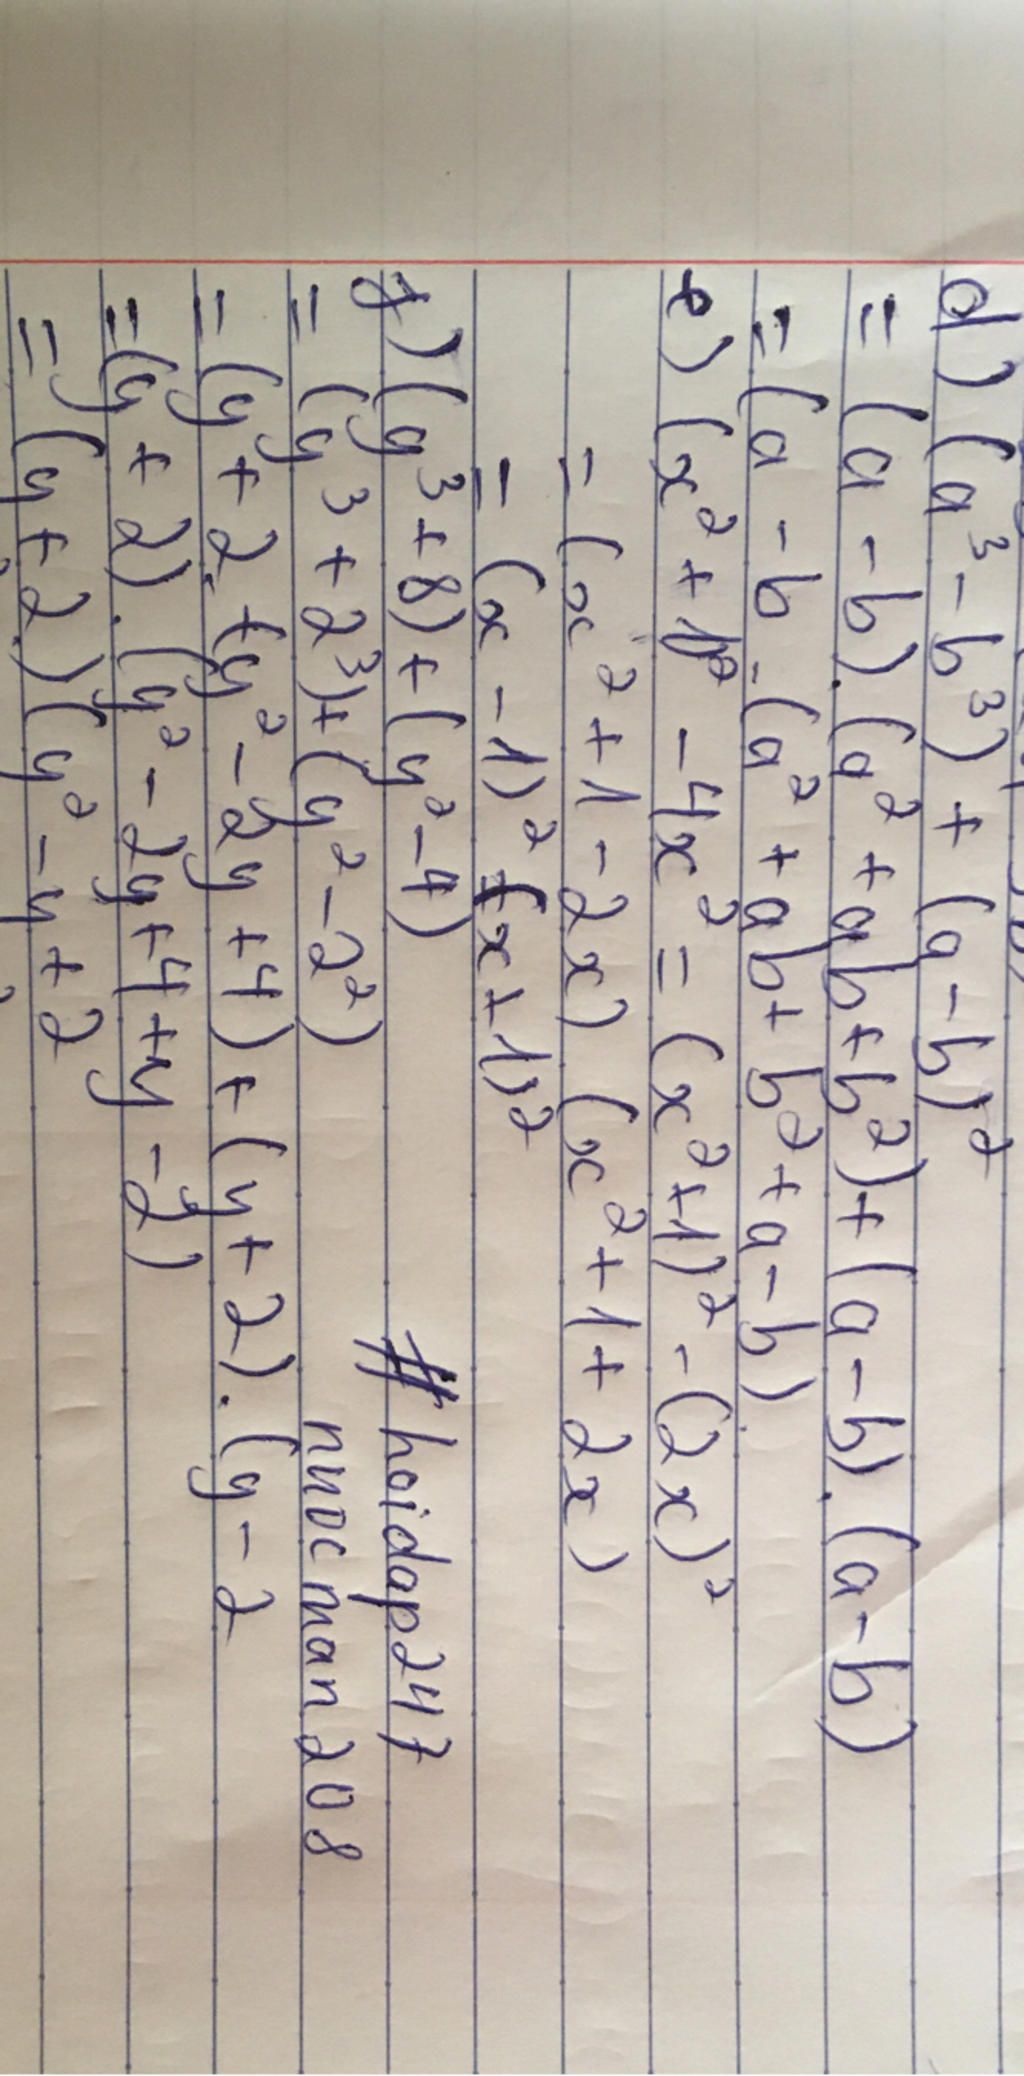 d) (a³ - b³) + (a - b)²
= (a - b). (a² + ab + b²) + (a - b). (a - b)
= (a - b - (a² + ab + b² + a - b)
e) (x² + 1)² - 4x² = (x² + 1)² - (2x)²
= (x² + 1 - 2x) (x² + 1 + 2x)
= (x - 1)² (x + 1)²
f) (y³ + 8) + (y² - 4)
= (y³ + 2³) + (y² - 2²)
= (y + 2. (y² - 2y + 4) + (y + 2). (y - 2
= (y + 2). (y² - 2y + 4 + y - 2)
= (y + 2) (y² - y + 2
# hoidap247
nuocman208